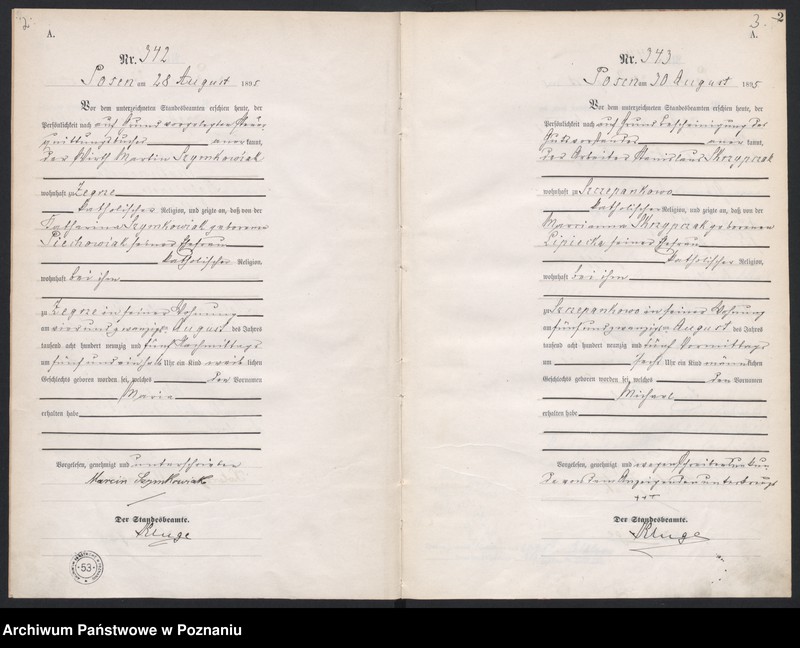 2
A.
Nr. 342
Posen am 28 August 1895
Vor dem unterzeichneten Standesbeamten erschien heute, der
Persönlichkeit nach auf Grund vorgelegten Steuer
quittungsbuches anerkannt,
der Wirth Martin Szymkowiak
wohnhaft zu Zegrze
katholischer Religion, und zeigte an, daß von der
Katharina Szymkowiak geborenen
Piechowiak seiner Ehefrau
katholischer Religion,
wohnhaft bei ihm
zu Zegrze in seiner Wohnung
am vierundzwanzigsten August des Jahres
tausend acht hundert neunzig und fünf Nachmittags
um fünf und einhalb Uhr ein Kind weiblichen
Geschlechts geboren worden sei, welches den Vornamen
Maria
erhalten habe
Vorgelesen, genehmigt und unterschrieben
Marcin Szymkowiak
Der Standesbeamte.
Kluge
53
3.
2
A.
Nr. 343
Posen am 30 August 1895
Vor dem unterzeichneten Standesbeamten erschien heute, der
Persönlichkeit nach auf Grund Bescheinigung des
Gutsvorstandes anerkannt,
der Arbeiter Stanislaus Skrzypczak
wohnhaft zu Szczepankowo
katholischer Religion, und zeigte an, daß von der
Marianna Skrzypczak geborenen
Lipiecka seiner Ehefrau
katholischer Religion,
wohnhaft bei ihm
zu Szczepankowo in seiner Wohnung
am fünfundzwanzigsten August des Jahres
tausend acht hundert neunzig und fünf Vormittags
um sechs Uhr ein Kind männlichen
Geschlechts geboren worden sei, welches den Vornamen
Michael
erhalten habe
Vorgelesen, genehmigt und wegen Schreibensunkun
de von dem Anzeigenden unterkreuzt
+++
Der Standesbeamte.
Kluge
Archiwum Państwowe w Poznaniu